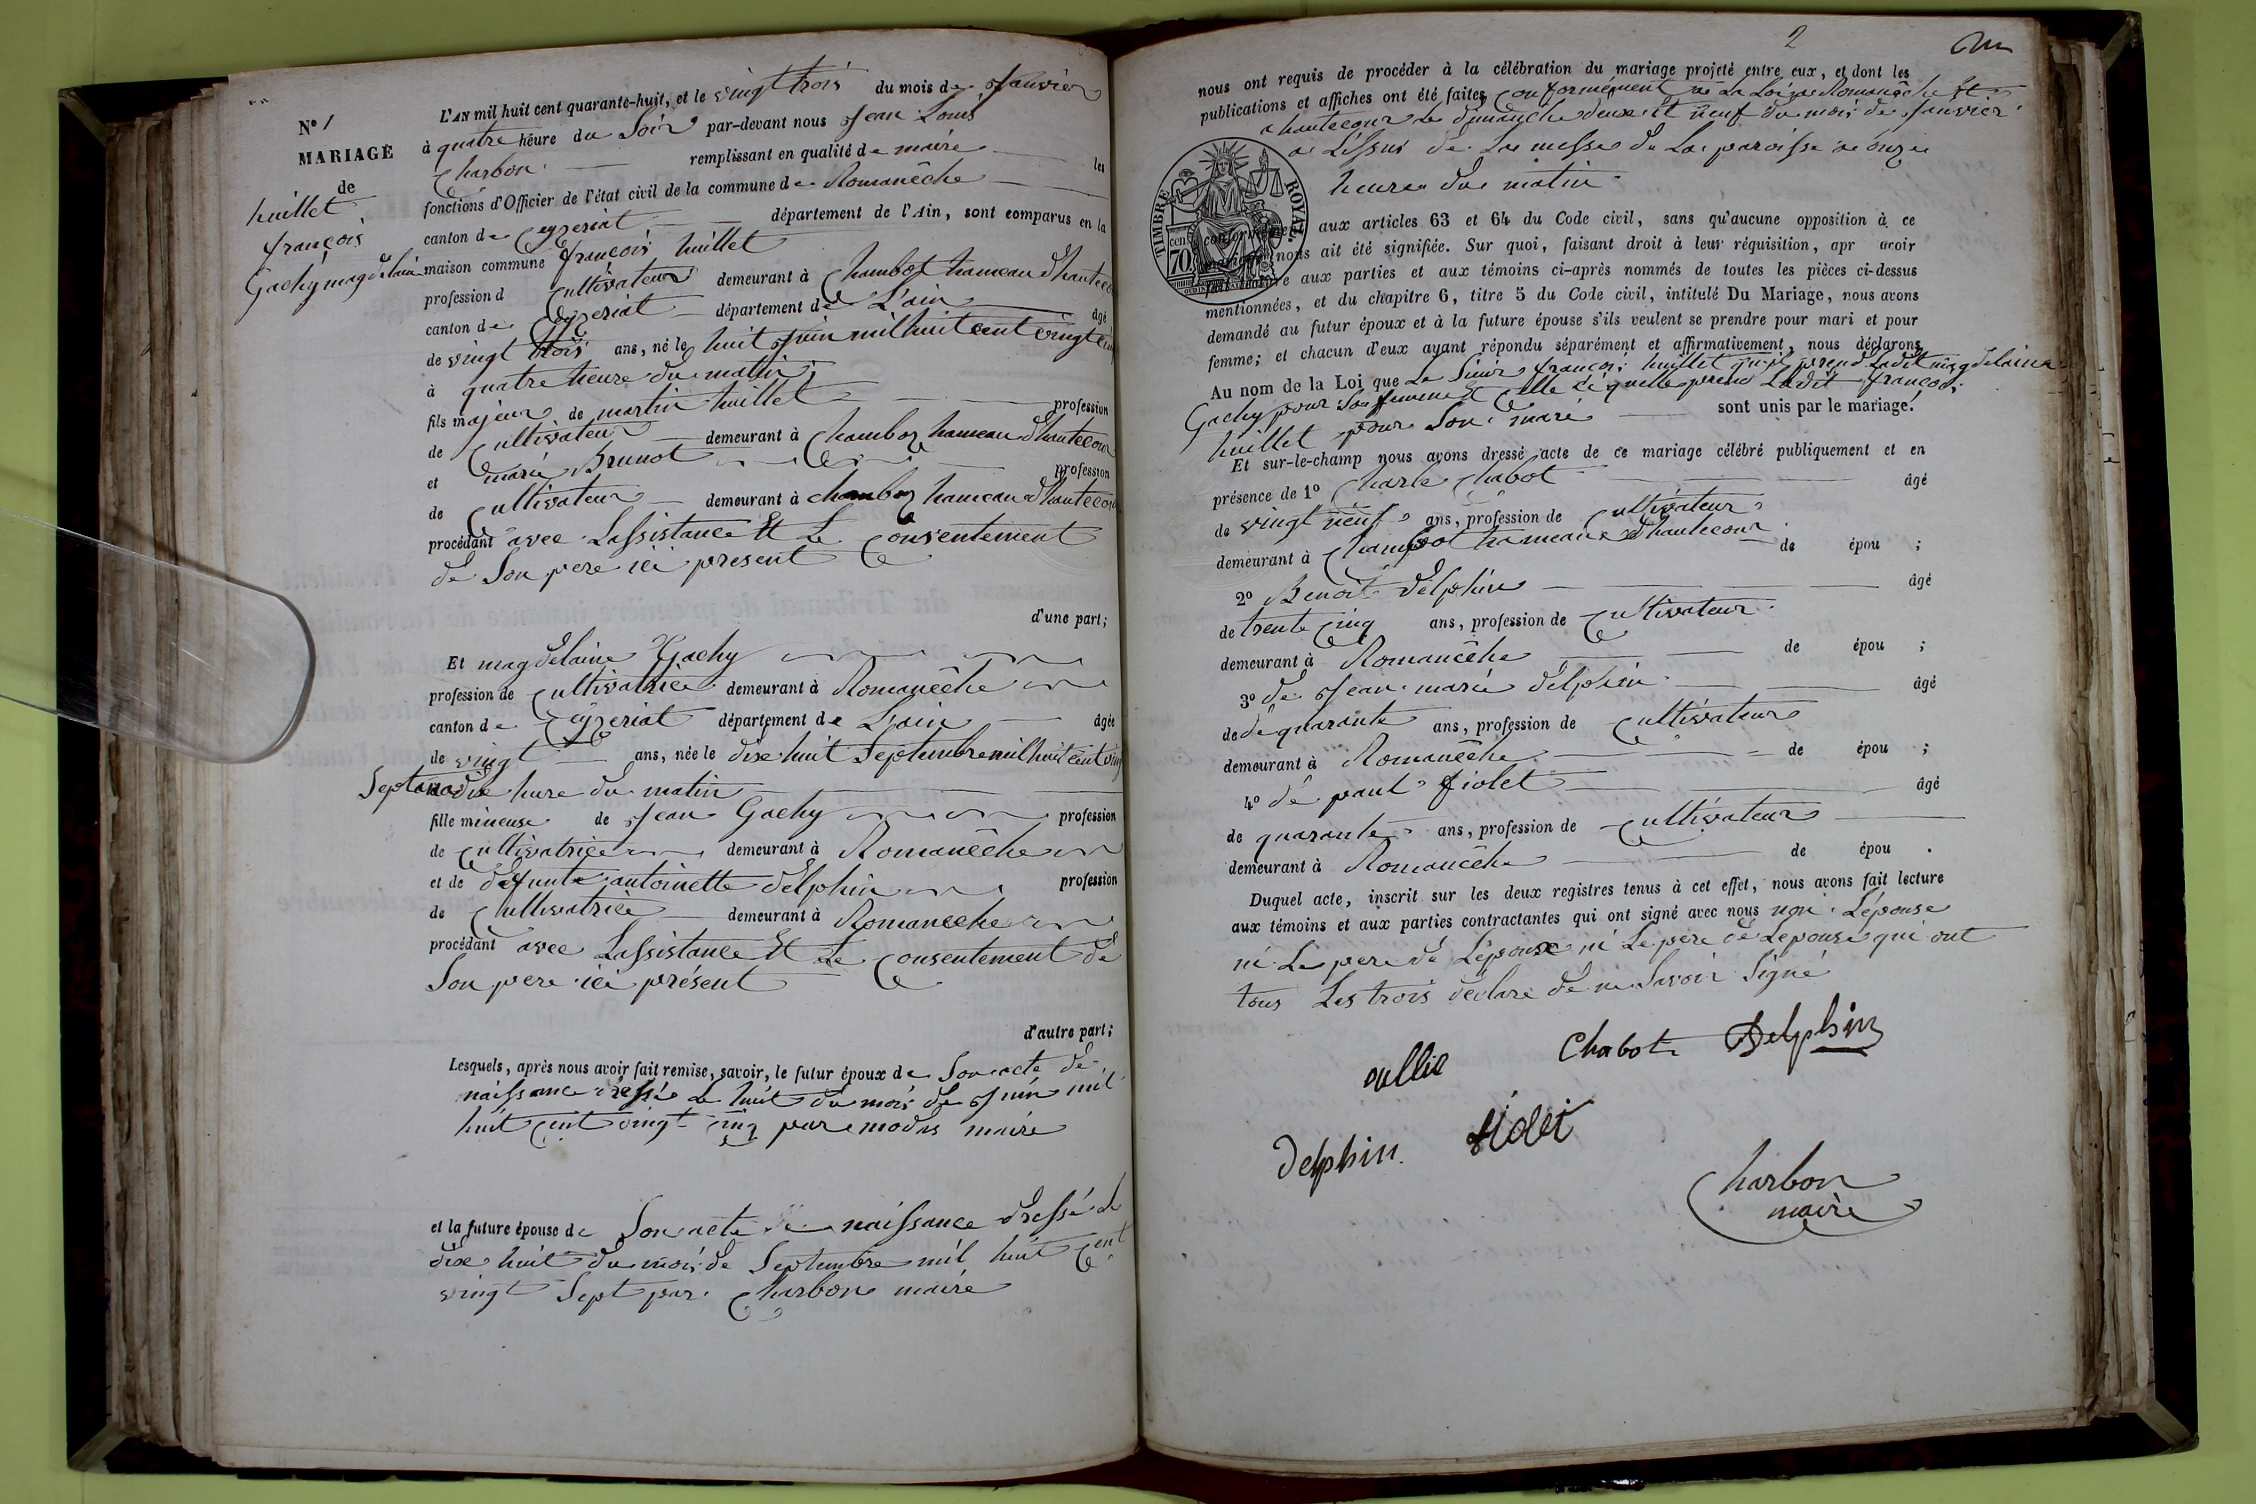 N° 1
MARIAGE
de
huillet
françois
Gachy magdelaine
L'AN mil huit cent quarante-huit, et le vingt trois du mois de Janvier
à quatre heure du Soir par-devant nous Jean Louis
Charbon remplissant en qualité de maire les
fonctions d'Officier de l'état civil de la commune de Romanêche
canton de Ceyzeriat département de l'Ain, sont comparus en la
maison commune françois huillet
profession d Cultivateur demeurant à Chambot hameau d'hautecour
canton de Ceyzeriat département de L'ain âgé
de vingt trois ans, né le huit Juin mil huit cent vingt cinq
à quatre heure du matin
fils majeur de martin huillet profession
de Cultivateur demeurant à Chamboz hameau d'hautecour
et marie Brunot profession
de Cultivateur demeurant à chamboz hameau d'hautecour
procédant avec Lassistance Et Le Consentement
de Son pere ici present
d'une part;
Et magdelaine Gachy
profession de Cultivatrice demeurant à Romanêche
canton de Ceyzeriat département de L'ain âgée
de vingt ans, née le dixe huit Septembre mil huit cent vingt
Sept à dix hure du matin
fille mineuse de Jean Gachy profession
de Cultivatrice demeurant à Romanêche
et de defunte antoinette delphin profession
de Cultivatrice demeurant à Romaneche
procédant avec Lassistance Et Le Consentement de
Son pere ici présent
d'autre part;
Lesquels, après nous avoir fait remise, savoir, le futur époux de Son acte de
naissance dressé Le huit du mois de Juin mil
huit Cent vingt cinq par modas maire
et la future épouse de Son acte de naissance dressé le
dixe huit du mois de Septembre mil huit Cent
vingt Sept par Charbon maire
2
nous ont requis de procéder à la célébration du mariage projeté entre eux, et dont les
publications et affiches ont été faites Conformément a La Loi a Romanêche Et
a hautecour Le dimanche deux et neuf du mois de Janvier
a L'issus de La messe de La paroisse a onze
heures du matin
TIMBRE ROYAL
70 cent
conformément aux articles 63 et 64 du Code civil, sans qu'aucune opposition à ce
mariage nous ait été signifiée. Sur quoi, faisant droit à leur réquisition, apr avoir
fait lecture aux parties et aux témoins ci-après nommés de toutes les pièces ci-dessus
mentionnées, et du chapitre 6, titre 5 du Code civil, intitulé Du Mariage, nous avons
demandé au futur époux et à la future épouse s'ils veulent se prendre pour mari et pour
femme; et chacun d'eux ayant répondu séparément et affirmativement, nous déclarons
Au nom de la Loi que Le Sieur françois huillet qui prend Ladit magdelaine
Gachy pour Sa femme Et Celle ci quelle prend Ledit françois
huillet pour Son mari sont unis par le mariage.
Et sur-le-champ nous avons dressé acte de ce mariage célébré publiquement et en
présence de 1° Charle Chabot âgé
de vingt neuf ans, profession de Cultivateur
demeurant à Chambot hameau d'hautecour de épou ;
2° Benoit delphin âgé
de trente Cinq ans, profession de Cultivateur
demeurant à Romanêche de épou ;
3° de Jean marie delphin âgé
de de quarante ans, profession de Cultivateur
demeurant à Romanêche de épou ;
4° de paul fiolet âgé
de quarante ans, profession de Cultivateur
demeurant à Romanêche de épou .
Duquel acte, inscrit sur les deux registres tenus à cet effet, nous avons fait lecture
aux témoins et aux parties contractantes qui ont signé avec nous non Lépouse
ni Le pere de Lépoux ni Le pere de Lepouse qui ont
tous Les trois déclare de ne Savoir Signé
Chabot Delphin
Delphin fiolet
Charbon
maire